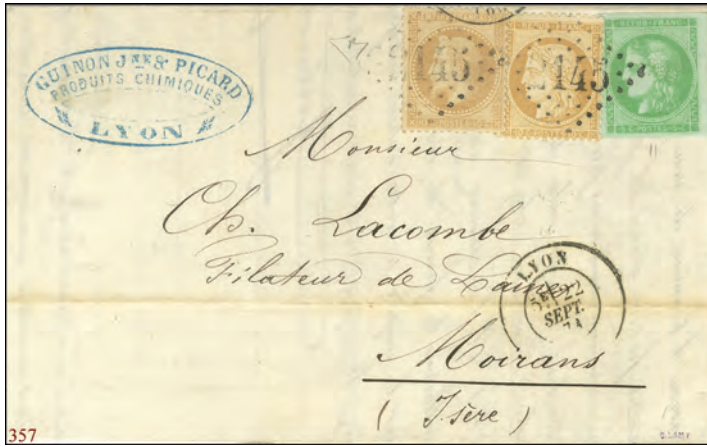 GUINON JNE & PICARD
PRODUITS CHIMIQUES
LYON
2145
2145
REPUB. FRANC.
Monsieur
Ch. Lacombe
Filateur de Laines
LYON
22
SEPT.
71
Moirans
(Isère)
357